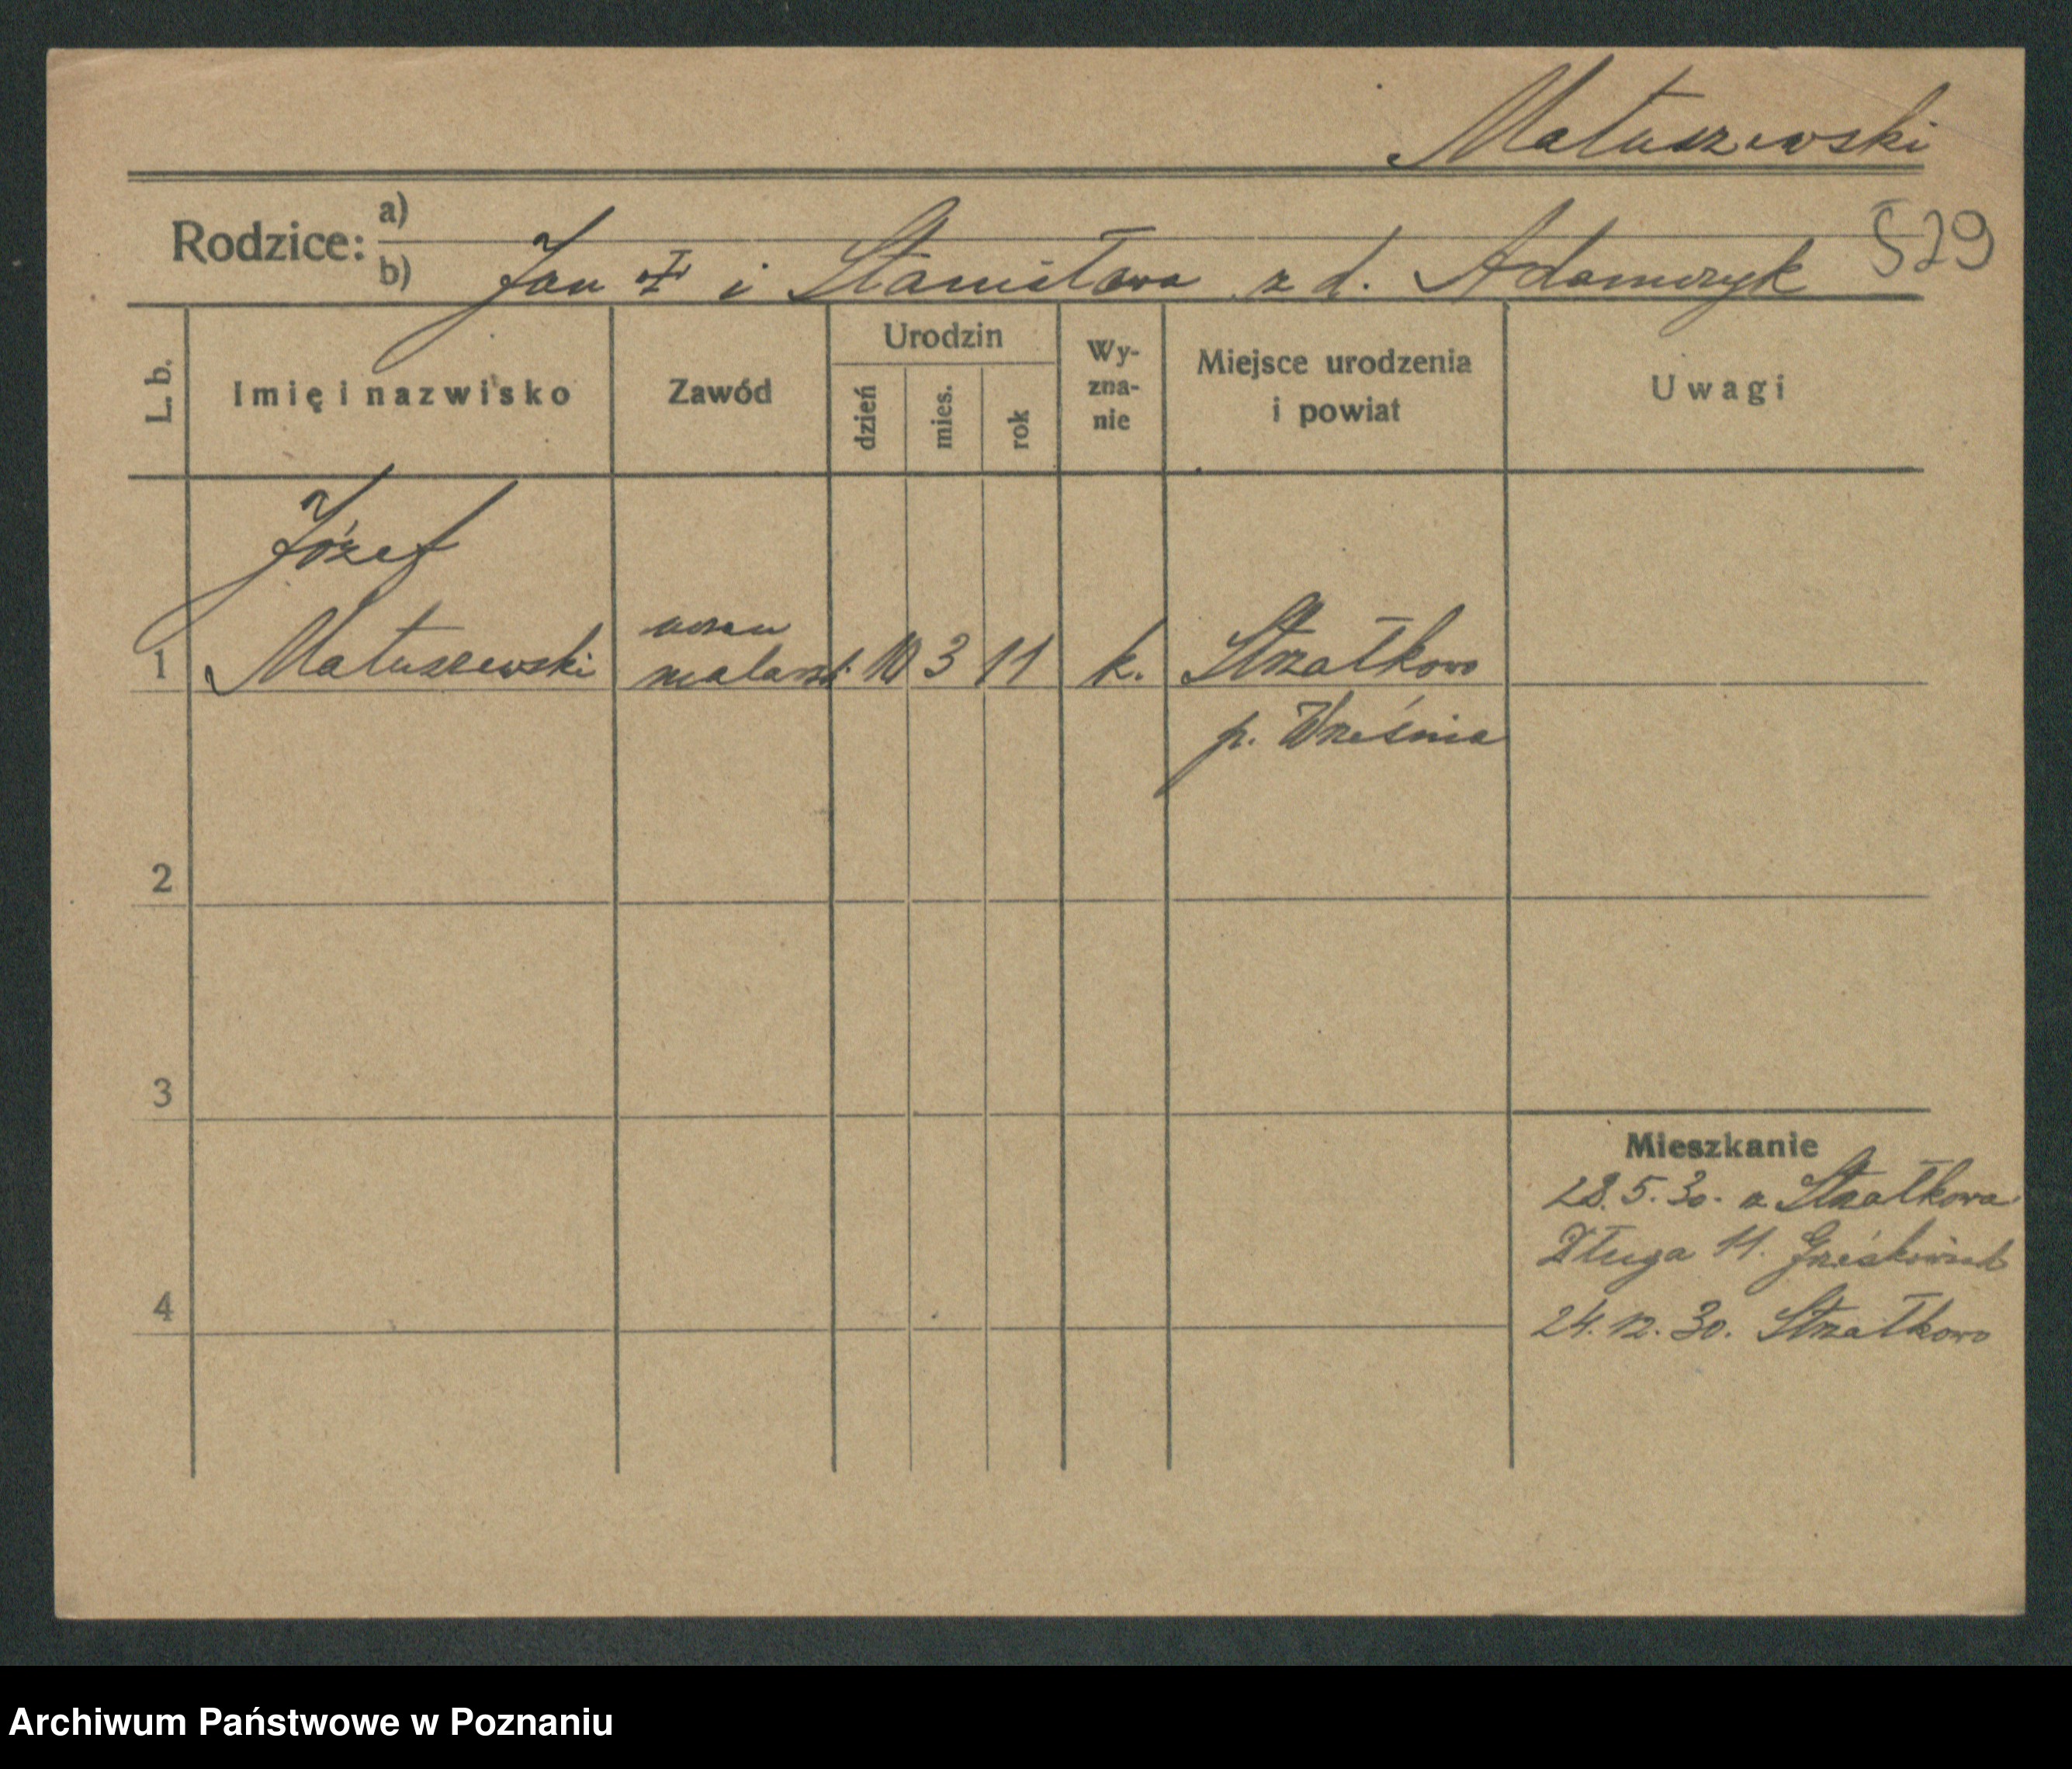 Matuszewski
529
Rodzice: a)
b) Jan † i Stanisława z d. Adamczyk
L. b.
Imię i nazwisko
Zawód
Urodzin
dzień
mies.
rok
Wy-
zna-
nie
Miejsce urodzenia
i powiat
Uwagi
Józef
uczeń
1 Matuszewski malarski 10 3 11 k. Strzałkowo
p. Września
2
3
Mieszkanie
28. 5. 30. z Strzałkowa
Długa 11.
4
24. 12. 30. Strzałkowo
Archiwum Państwowe w Poznaniu